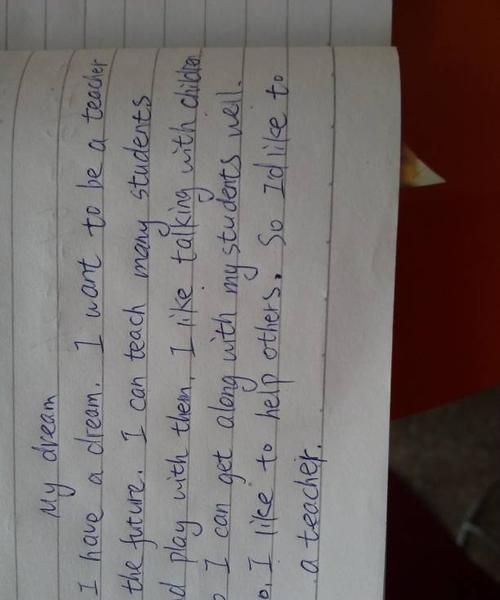 My dream
I have a dream. I want to be a teacher
the future. I can teach many students
d play with them. I like talking with children
I can get along with my students well.
o, I like to help others. So I'd like to
a teacher.